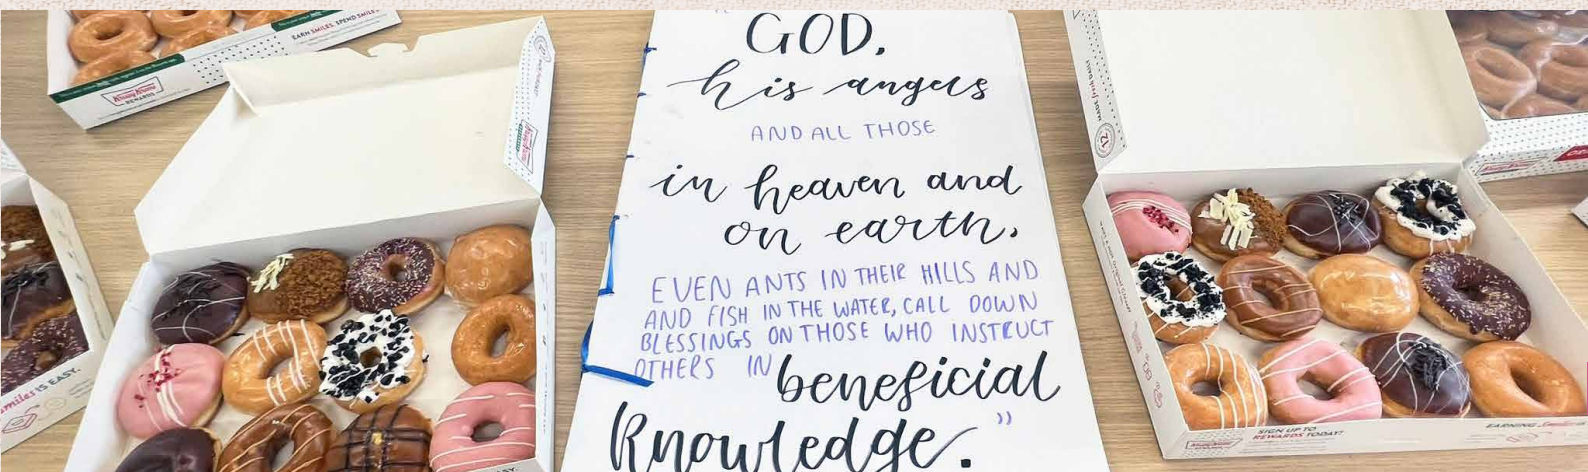 GOD,
his angels
AND ALL THOSE
in heaven and
on earth,
EVEN ANTS IN THEIR HILLS AND
AND FISH IN THE WATER, CALL DOWN
BLESSINGS ON THOSE WHO INSTRUCT
OTHERS IN beneficial
knowledge."
EARN SMILES, SPEND SMILES
Krispy Kreme
REWARDS
smiles IS EASY.
MADE fresh DAILY
12
SIGN UP TO
REWARDS TODAY!
EARNING